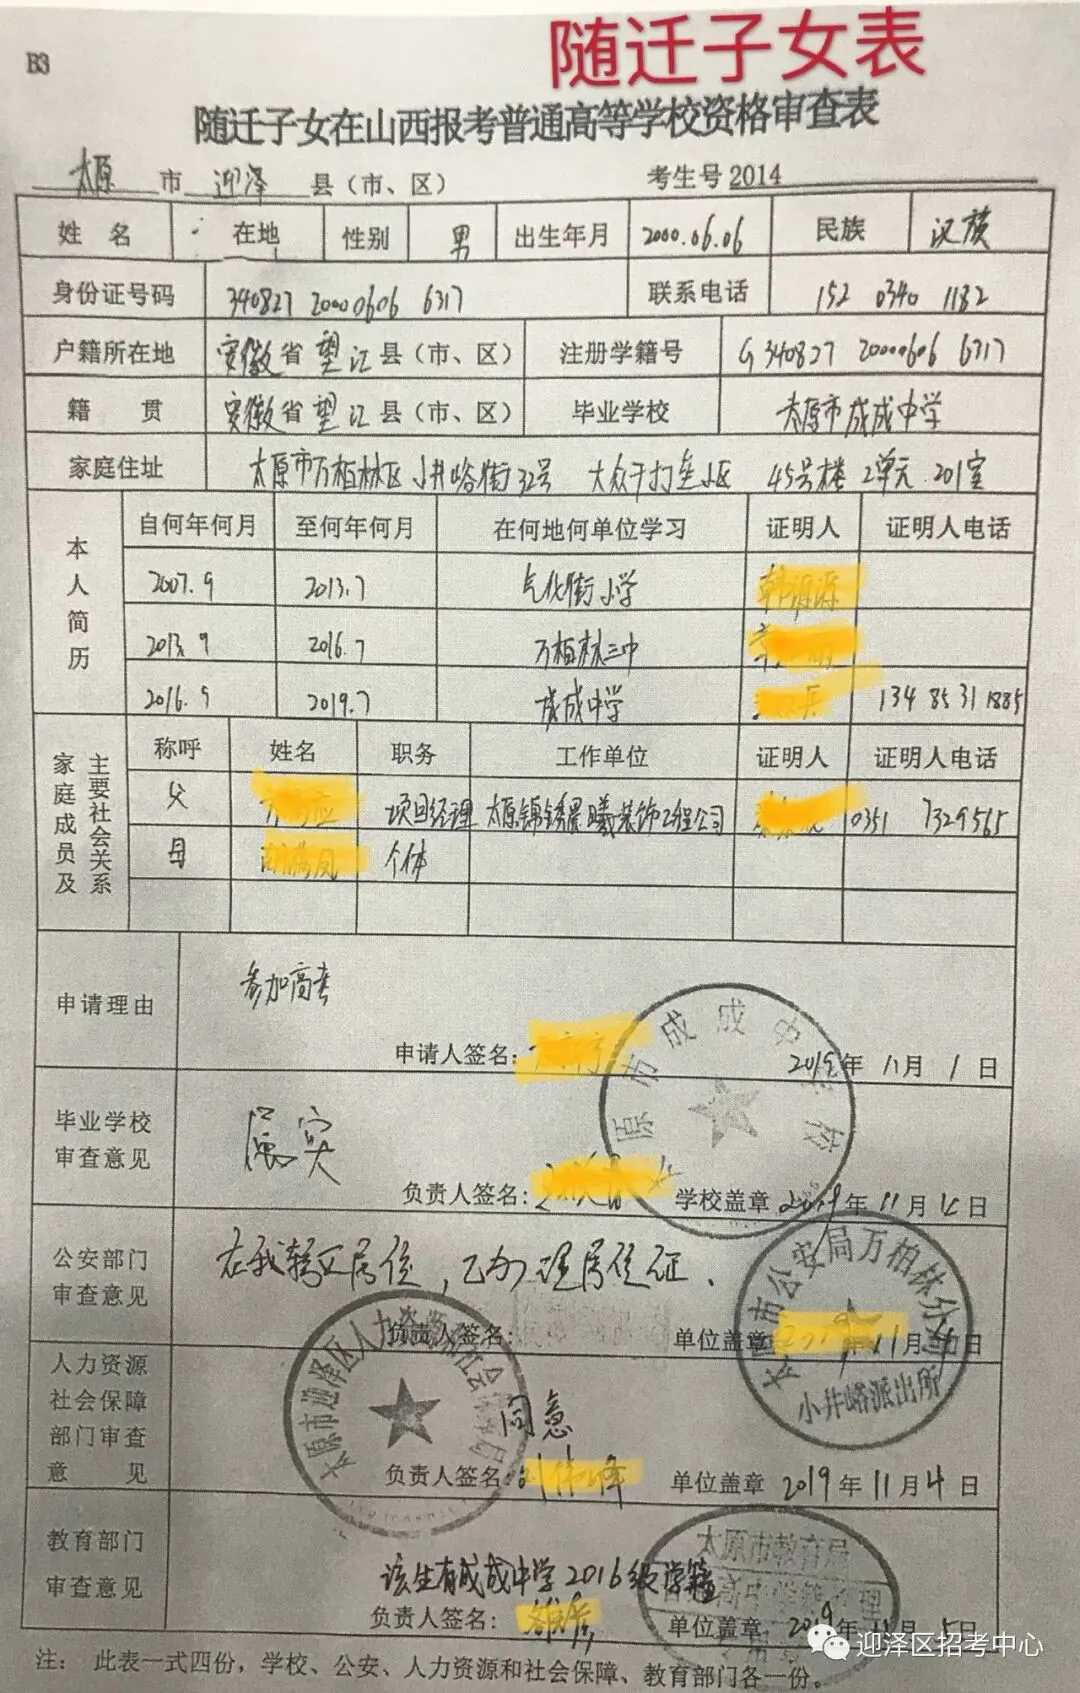 随迁子女表
B3
随迁子女在山西报考普通高等学校资格审查表
太原 市 迎泽 县（市、区） 考生号 2014
姓 名 在地 性别 男 出生年月 2000.06.06 民族 汉族
身份证号码 340827 20000606 6317 联系电话 152 0340 1182
户籍所在地 安徽 省 望江 县（市、区） 注册学籍号 G 340827 20000606 6317
籍 贯 安徽 省 望江 县（市、区） 毕业学校 太原市成成中学
家庭住址 太原市万柏林区 小井峪街32号 45号楼 2单元 201室
本人简历 自何年何月 至何年何月 在何地何单位学习 证明人 证明人电话
2007.9 2013.7 气化街小学
2013.9 2016.7 万柏林三中
2016.9 2019.7 成成中学 134 8531 1885
家庭成员及主要社会关系 称呼 姓名 职务 工作单位 证明人 证明人电话
父 项目经理 太原锦绣晨曦装饰工程公司 0351 7329565
母 个体
申请理由 参加高考
申请人签名： 2019年 11月 1日
毕业学校审查意见 属实
负责人签名： 学校盖章 2019年 11月 4日
太原市成成中学校
公安部门审查意见 在我辖区居住，已办理居住证.
负责人签名： 单位盖章 2019年 11月 日
太原市公安局万柏林分局
小井峪派出所
人力资源社会保障部门审查意见 同意
负责人签名： 单位盖章 2019年 11月 4日
太原市迎泽区人力资源和社会保障局
教育部门审查意见 该生有成成中学2016级学籍
负责人签名： 单位盖章 2019年 11月 5日
太原市教育局
注： 此表一式四份，学校、公安、人力资源和社会保障、教育部门各一份。
迎泽区招考中心